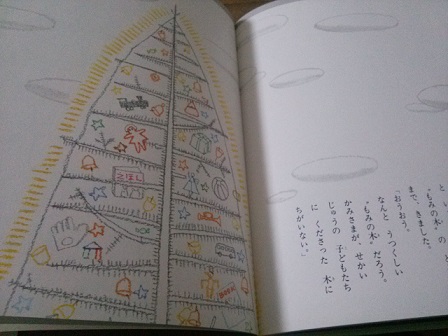 "もみの木"の
まで、きました。
「おうおう。
なんと うつくしい
"もみの木"だろう。
かみさまが、せかい
じゅうの 子どもたち
に くださった 木に
ちがいない。」
えほん